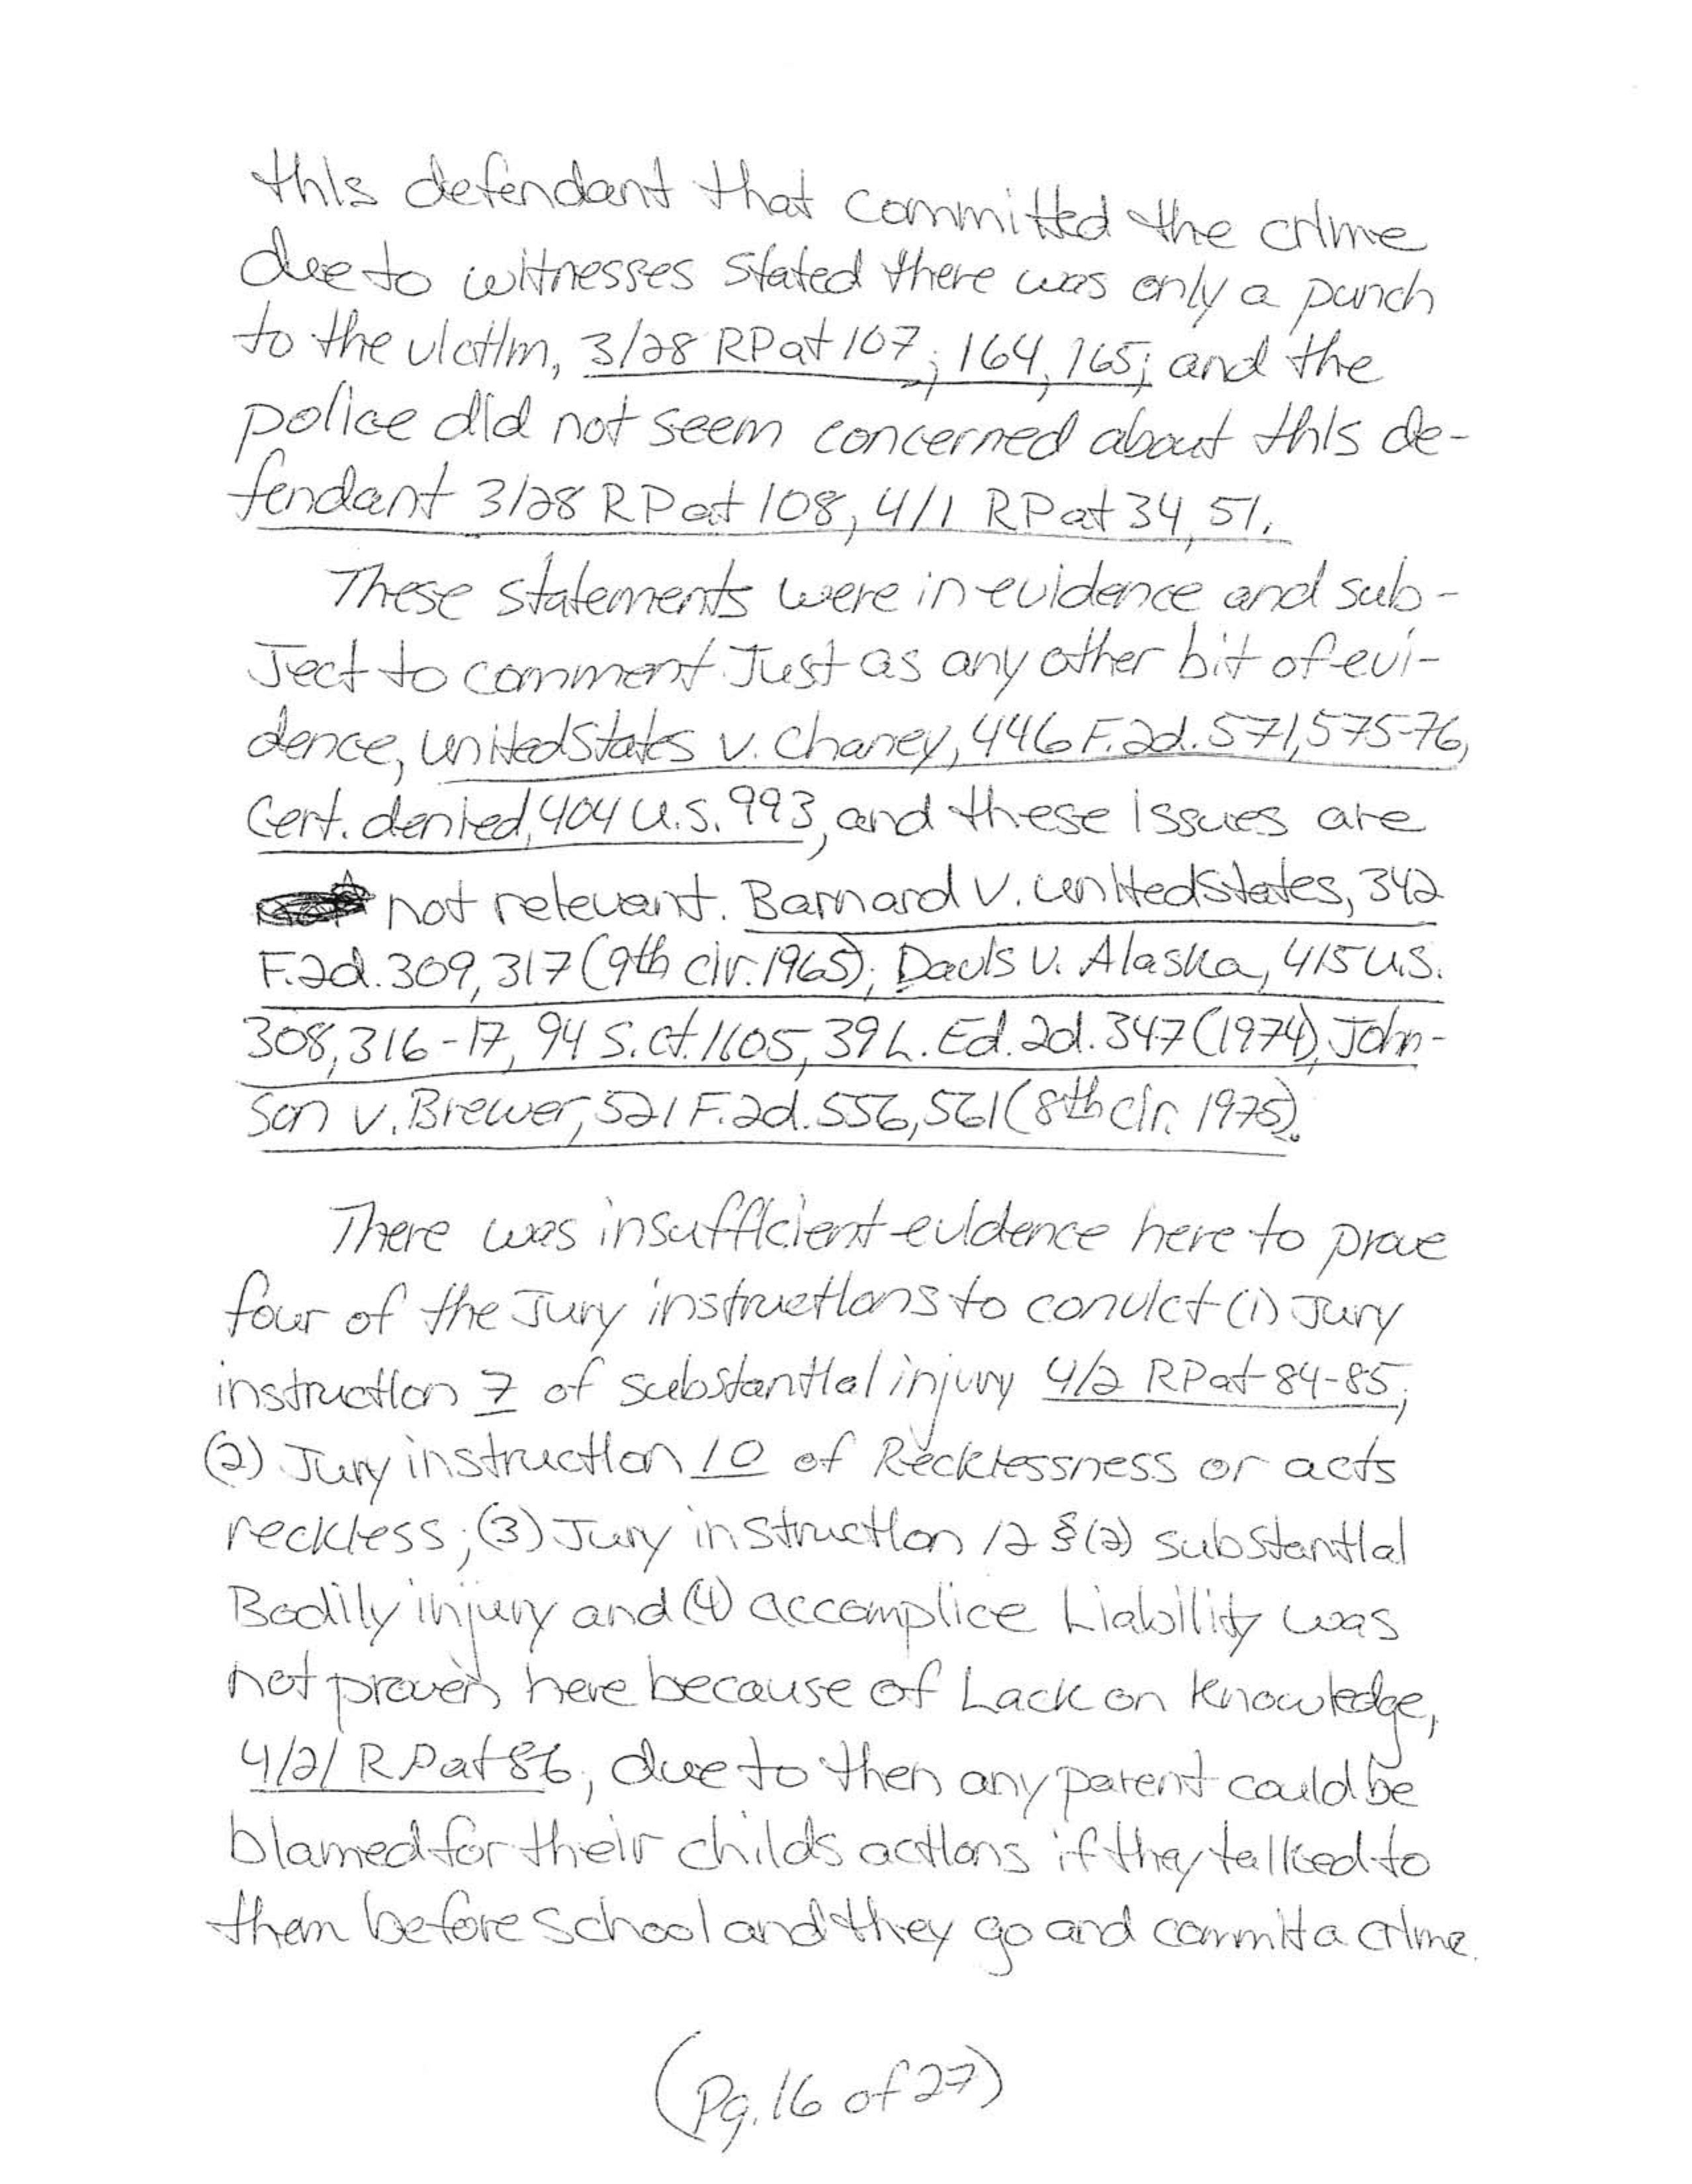 this defendant that committed the crime
due to witnesses stated there was only a punch
to the victim, 3/28 RP at 107; 164, 165; and the
police did not seem concerned about this de-
fendant 3/28 RP at 108, 4/1 RP at 34, 51.
These statements were in evidence and sub-
Ject to comment Just as any other bit of evi-
dence, united States v. Chaney, 446 F.2d. 571, 575-76,
Cert. denied, 404 U.S. 993, and these issues are
not relevant. Barnard v. united States, 342
F.2d. 309, 317 (9th cir. 1965); Davis v. Alaska, 415 U.S.
308, 316-17, 94 S.Ct. 1105, 39 L. Ed. 2d. 347 (1974), John-
Son v. Brewer, 521 F.2d. 556, 561 (8th cir. 1975).
There was insufficient evidence here to prove
four of the Jury instructions to convict (1) Jury
instruction 7 of substantial injury 4/2 RP at 84-85;
(2) Jury instruction 10 of Recklessness or acts
reckless; (3) Jury instruction 12 §(2) substantial
Bodily injury and (4) accomplice Liability was
not proven here because of Lack on knowledge,
4/2/ RP at 86, due to then any parent could be
blamed for their childs actions if they talked to
them before school and they go and commit a crime.
(Pg. 16 of 27)